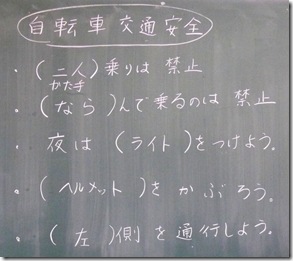 自転車交通安全
・(二人)乗りは 禁止
かた手
・(なら)んで乗るのは 禁止
・夜は(ライト)をつけよう。
・(ヘルメット)をかぶろう。
・(左)側を通行しよう。